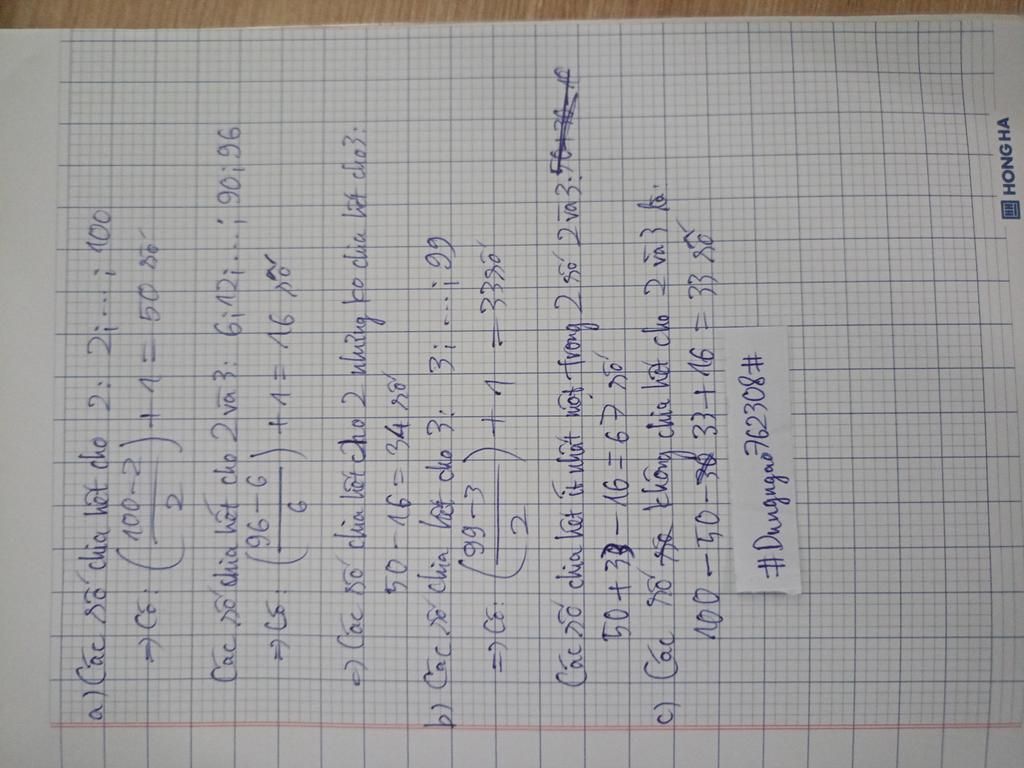 a) Các số chia hết cho 2: 2; ...; 100
=> Có: (100-2/2) + 1 = 50 số
Các số chia hết cho 2 và 3: 6; 12; ...; 90; 96
=> Có: (96-6/6) + 1 = 16 số
=> Các số chia hết cho 2 nhưng ko chia hết cho 3:
50 - 16 = 34 số
b) Các số chia hết cho 3: 3; ...; 99
=> Có: (99-3/2) + 1 = 33 số
Các số chia hết ít nhất một trong 2 số 2 và 3:
50 + 33 - 16 = 67 số
c) Các số không chia hết cho 2 và 3 là:
100 - 50 - 33 + 16 = 33 số
#Dungngao762308#
HONG HA